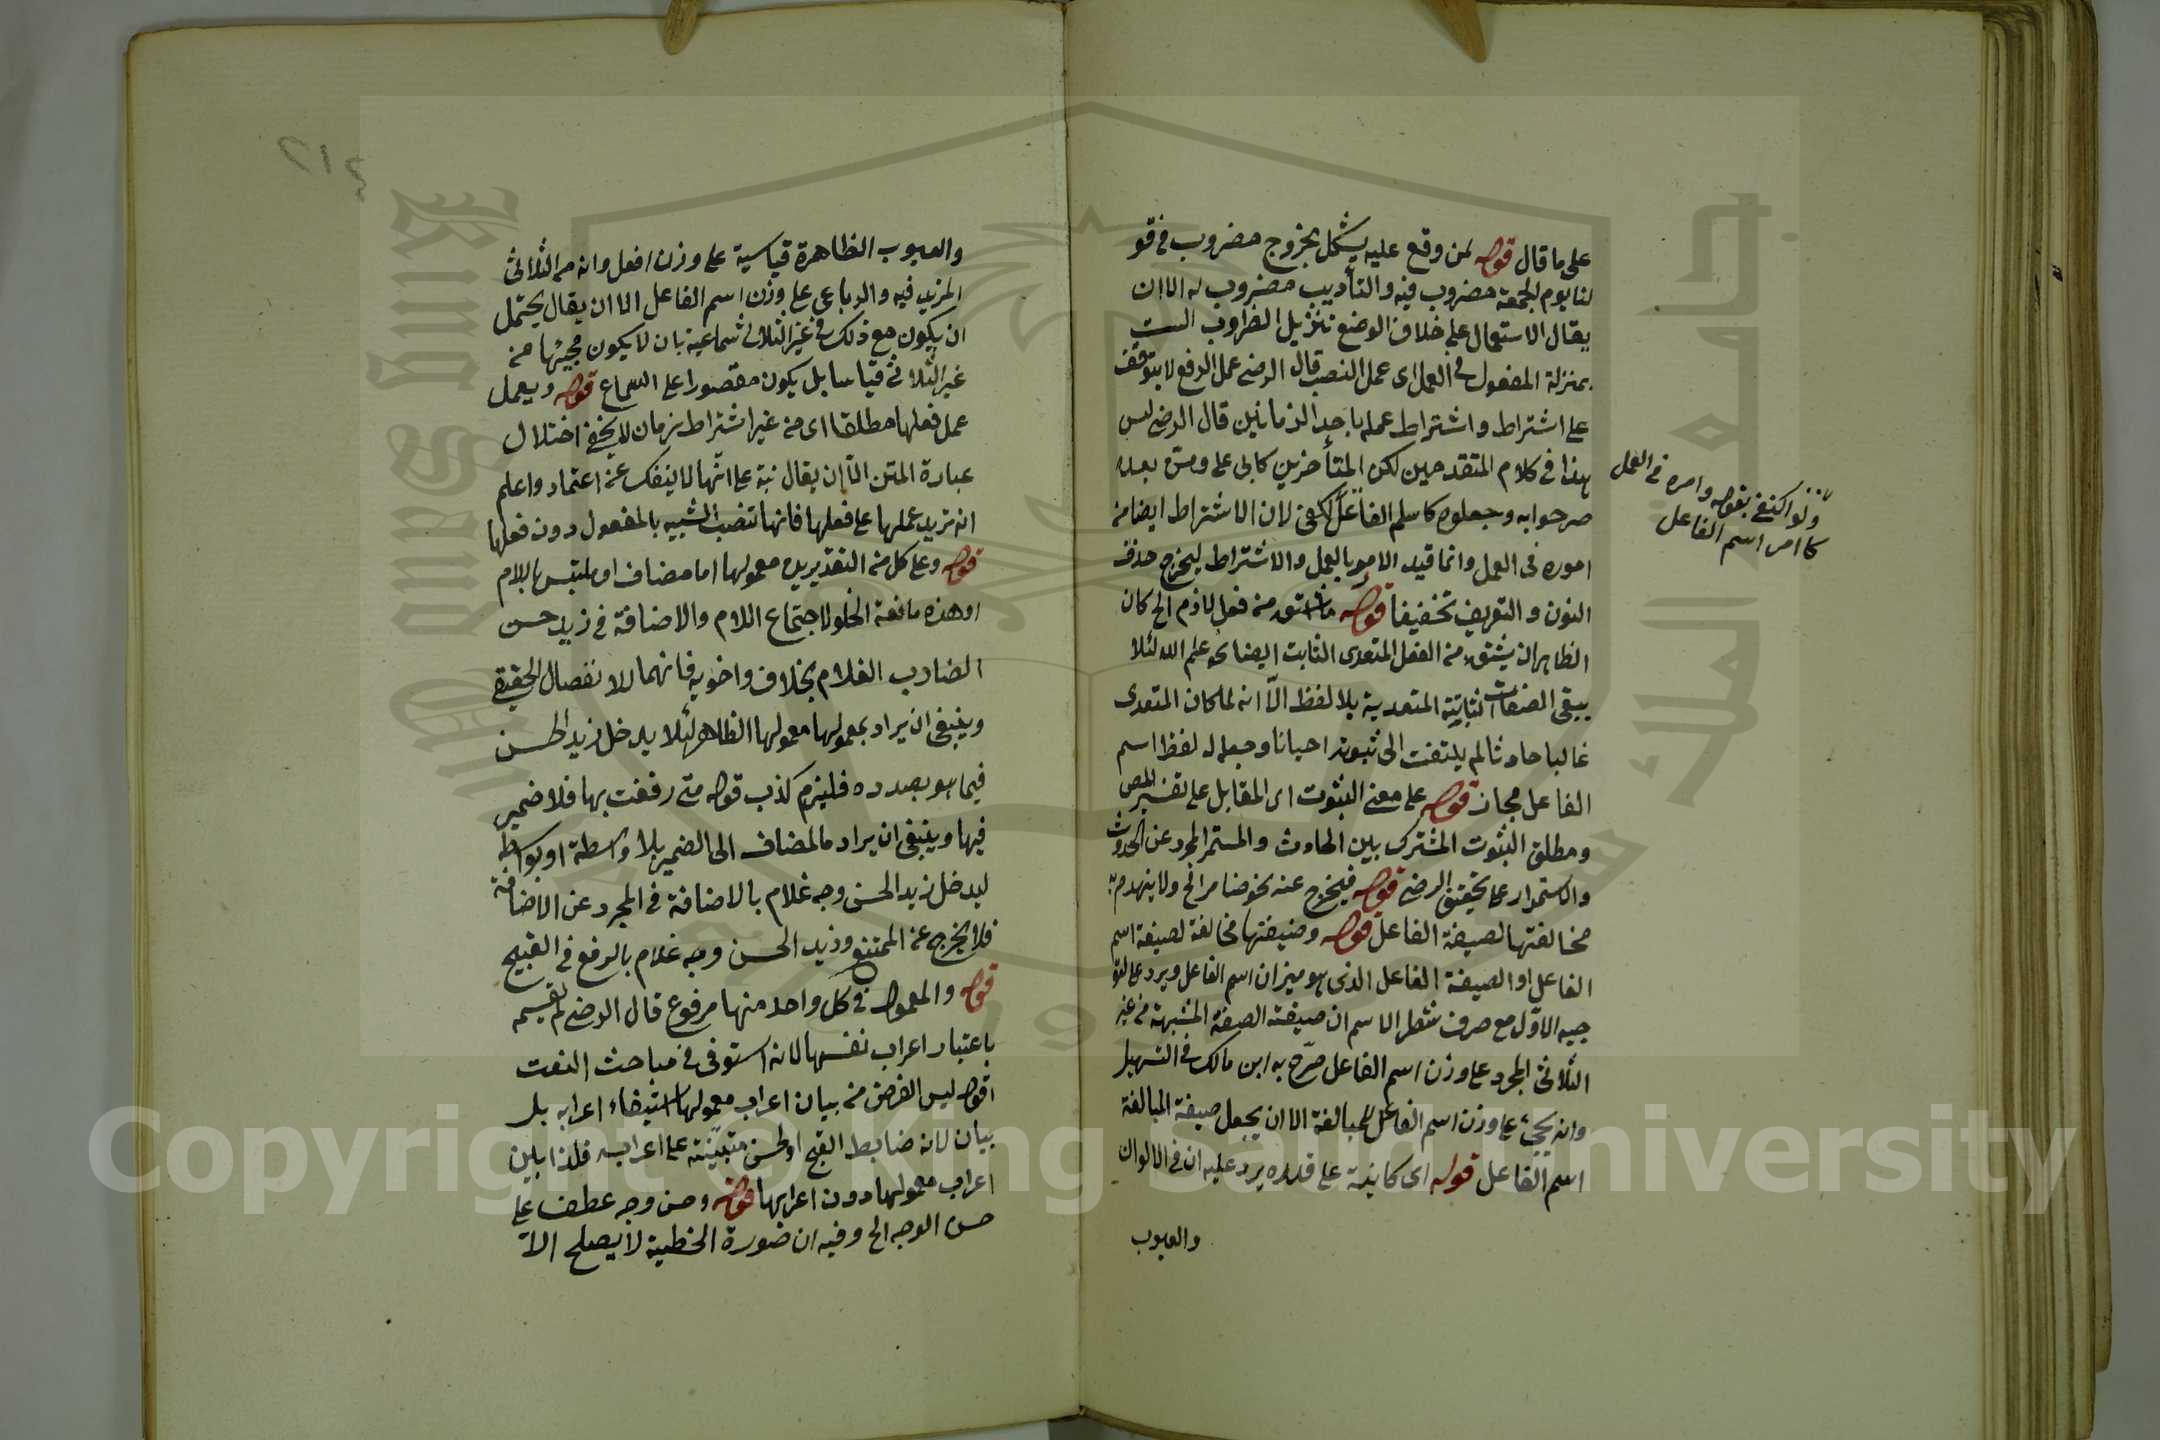 على ما قال قوله لمن وقع عليه يشكل بخروج مضروب في قو
لنا يوم الجمعة مضروب فيه والتأديب مضروب له الا ان
يقال الاستعمال على خلاف الوضع تنزيل الظروف
بمنزلة المفعول في العمل اى عمل النصب قال الرضى عمل الرفع لا يتوقف
على اشتراط واشتراط عمله باحد الزمانين قال الرضى ليس
هذا في كلام المتقدمين لكن المتأخرين كابى على ومن بعده
صرحوا به وجعلوه كاسم الفاعل لان الاشتراط ايضا من
اموره في العمل وانما قيد الامر بالعمل والاشتراط ليخرج حذف
النون والتعريف تخفيفا قوله ما اشتق من فعل لازم الخ كان
الظاهر ان يشتق من الفعل المتعدى الثابت ايضا نحو علم الله لئلا
يبقى الصفات الثابتة المتعدية بلا لفظ الّا انه لما كان المتعدى
غالبا حادثا لم يلتفت الى ثبوته احيانا وجعل له لفظ اسم
الفاعل مجاز قوله على معنى الثبوت اى المقابل على تفسير المص
ومطلق الثبوت المشترك بين الحادث والمستمر المجرد عن الحدوث
والاستمرار على تحقيق الرضى قوله فيخرج عنه نحو ضامر الخ ولا ينهدم
مخالفتها لصيغة الفاعل قوله وصيغتها مخالفة لصيغة اسم
الفاعل او الصيغة الفاعل الذى هو ميزان اسم الفاعل ويرد على التو
جيه الاوّل مع صرف شطر الاسم ان صيغته الصفة المشبهة من غير
الثلاثى المجرد على وزن اسم الفاعل صرّح به ابن مالك في التسهيل
وانه يجئ على وزن اسم الفاعل للمبالغة الا ان يجعل صيغة المبالغة
اسم الفاعل قوله اى كاينة على قدره يرد عليه ان في الالوان
والعيوب
ولو اكتفى بقوله وامره في العمل
كامر اسم الفاعل
والعيوب الظاهرة قياسية على وزن افعل وانه من الثلاثى
المزيد فيه والرباعى على وزن اسم الفاعل الا ان يقال يحتمل
ان يكون مع ذلك في غير الثلاثى سماعية بان لا يكون مجيئها من
غير الثلاثى قياسا بل يكون مقصورا على السماع قوله ويعمل
عمل فعلها مطلقا اى من غير اشتراط زمان لا يخفى اختلال
عبارة المتن الّا ان يقال نبه على انّها لا ينفك عن اعتماد واعلم
انه يزيد عملها على فعلها فانها تنصب الشبيه بالمفعول دون فعلها
قوله وعلى كل من التقديرين معمولها اما مضاف او ملتبس باللام
او هذه مانعة الخلو لاجتماع اللام والاضافة في زيد حسن
الضارب الغلام بخلاف واخويه فانهما للانفصال الحقيقى
وينبغى ان يراد بمعمولها معمولها الظاهر لئلا يدخل زيد الحسن
فيما هو بصدده فليزم كذب قوله متى رفعت بها فلا ضمير
فيها وينبغى ان يراد ما لمضاف الى الضمير بلا واسطة او بواسطة
ليدخل زيد الحسن وجه غلام بالاضافة في المجرد عن الاضافة
فلا يخرج عن الممتنع وزيد الحسن وجه غلام بالرفع في القبيح
قوله والمعمول في كل واحد منها مرفوع قال الرضى لم يقسمه
باعتبار اعراب نفسها لانه استوفى في مباحث النعت
اقول ليس الغرض من بيان اعراب معمولها استيفاء اعرابه بل
بيان لانه ضابط القبح او الحسن متبيّنة على اعرابه فلذا بين
اعراب معمولها دون اعرابها قوله وحسن وجه عطف على
حسن الوجه الخ وفيه ان صورة الخطية لا يصلح الا
٢١٤
Copyright © King Saud University
King Saud University
جامعة الملك سعود
1957